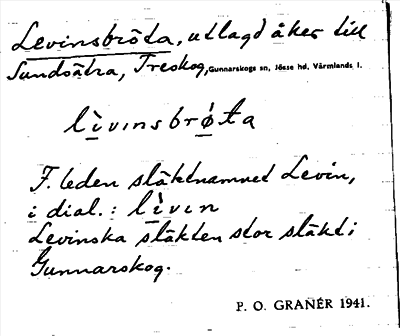 Levinsbröta, utlagd åker till
Sundsätra, Treskog, Gunnarskogs sn, Jösse hd, Värmlands l.
lìvınsbrǿta
F. leden släktnamnet Levin,
i dial.: lìvın
Levinska släkten stor släkt i
Gunnarskog.
P. O. GRANÉR 1941.